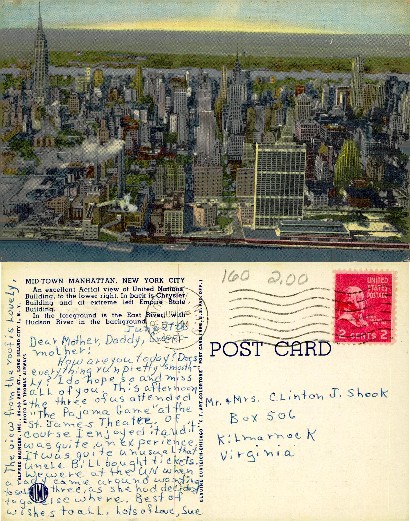 160 2.00
MIDTOWN MANHATTAN, NEW YORK CITY
An excellent Aerial view of United Nations
Building, to the lower right. In back is Chrysler
Building and at extreme left Empire State
Building.
In the foreground is the East River with
Hudson River in the background.
UNITED
STATES
POSTAGE
2 CENTS 2
POST CARD
Dear Mother, Daddy,
mother:
How are you today? Does
everything run pretty smooth-
ly? I do hope so and miss
all of you. This afternoon
the three of us attended
"The Pajama Game" at the
St. James Theatre. Of
course I enjoyed it and it
was quite an experience.
It was quite unusual that
uncle Bill bought tickets.
We were at the UN when
came around
three, as she had decided
else where. Best of
wishes to all. Lots of Love, Sue
The view from the roof is lovely.
Mr. & Mrs. Clinton J. Shook
Box 506
Kilmarnock
Virginia